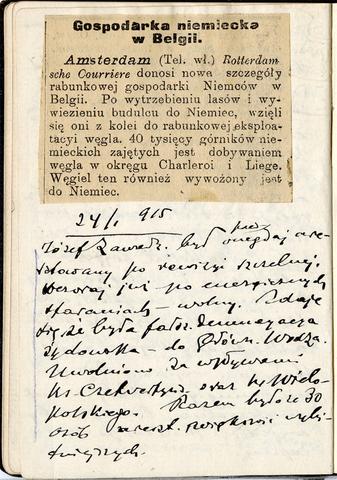 Gospodarka niemiecka
w Belgii.
Amsterdam (Tel. wł.) Rotterdam
sche Courriere donosi nowe szczegóły
rabunkowej gospodarki Niemców w
Belgii. Po wytrzebieniu lasów i wy-
wiezieniu budulcu do Niemiec, wzięli
się oni z kolei do rabunkowej eksploa-
tacyi węgla. 40 tysięcy górników nie-
mieckich zajętych jest dobywaniem
węgla w okręgu Charleroi i Liege.
Węgiel ten również wywożony jest
do Niemiec.
24/I 915
Józef Zawadz. był onegdaj are-
sztowany po rewizyi
Wczoraj już po energicznych
staraniach – wolny. Zdaje
się że była fałsz. denuncyacya
żydowska – do Główn. Wodza.
Uwolniono za wpływami
ks. Czetwertyń. oraz hr. Wielo-
polskiego. Razem było ze 30
osób areszt.